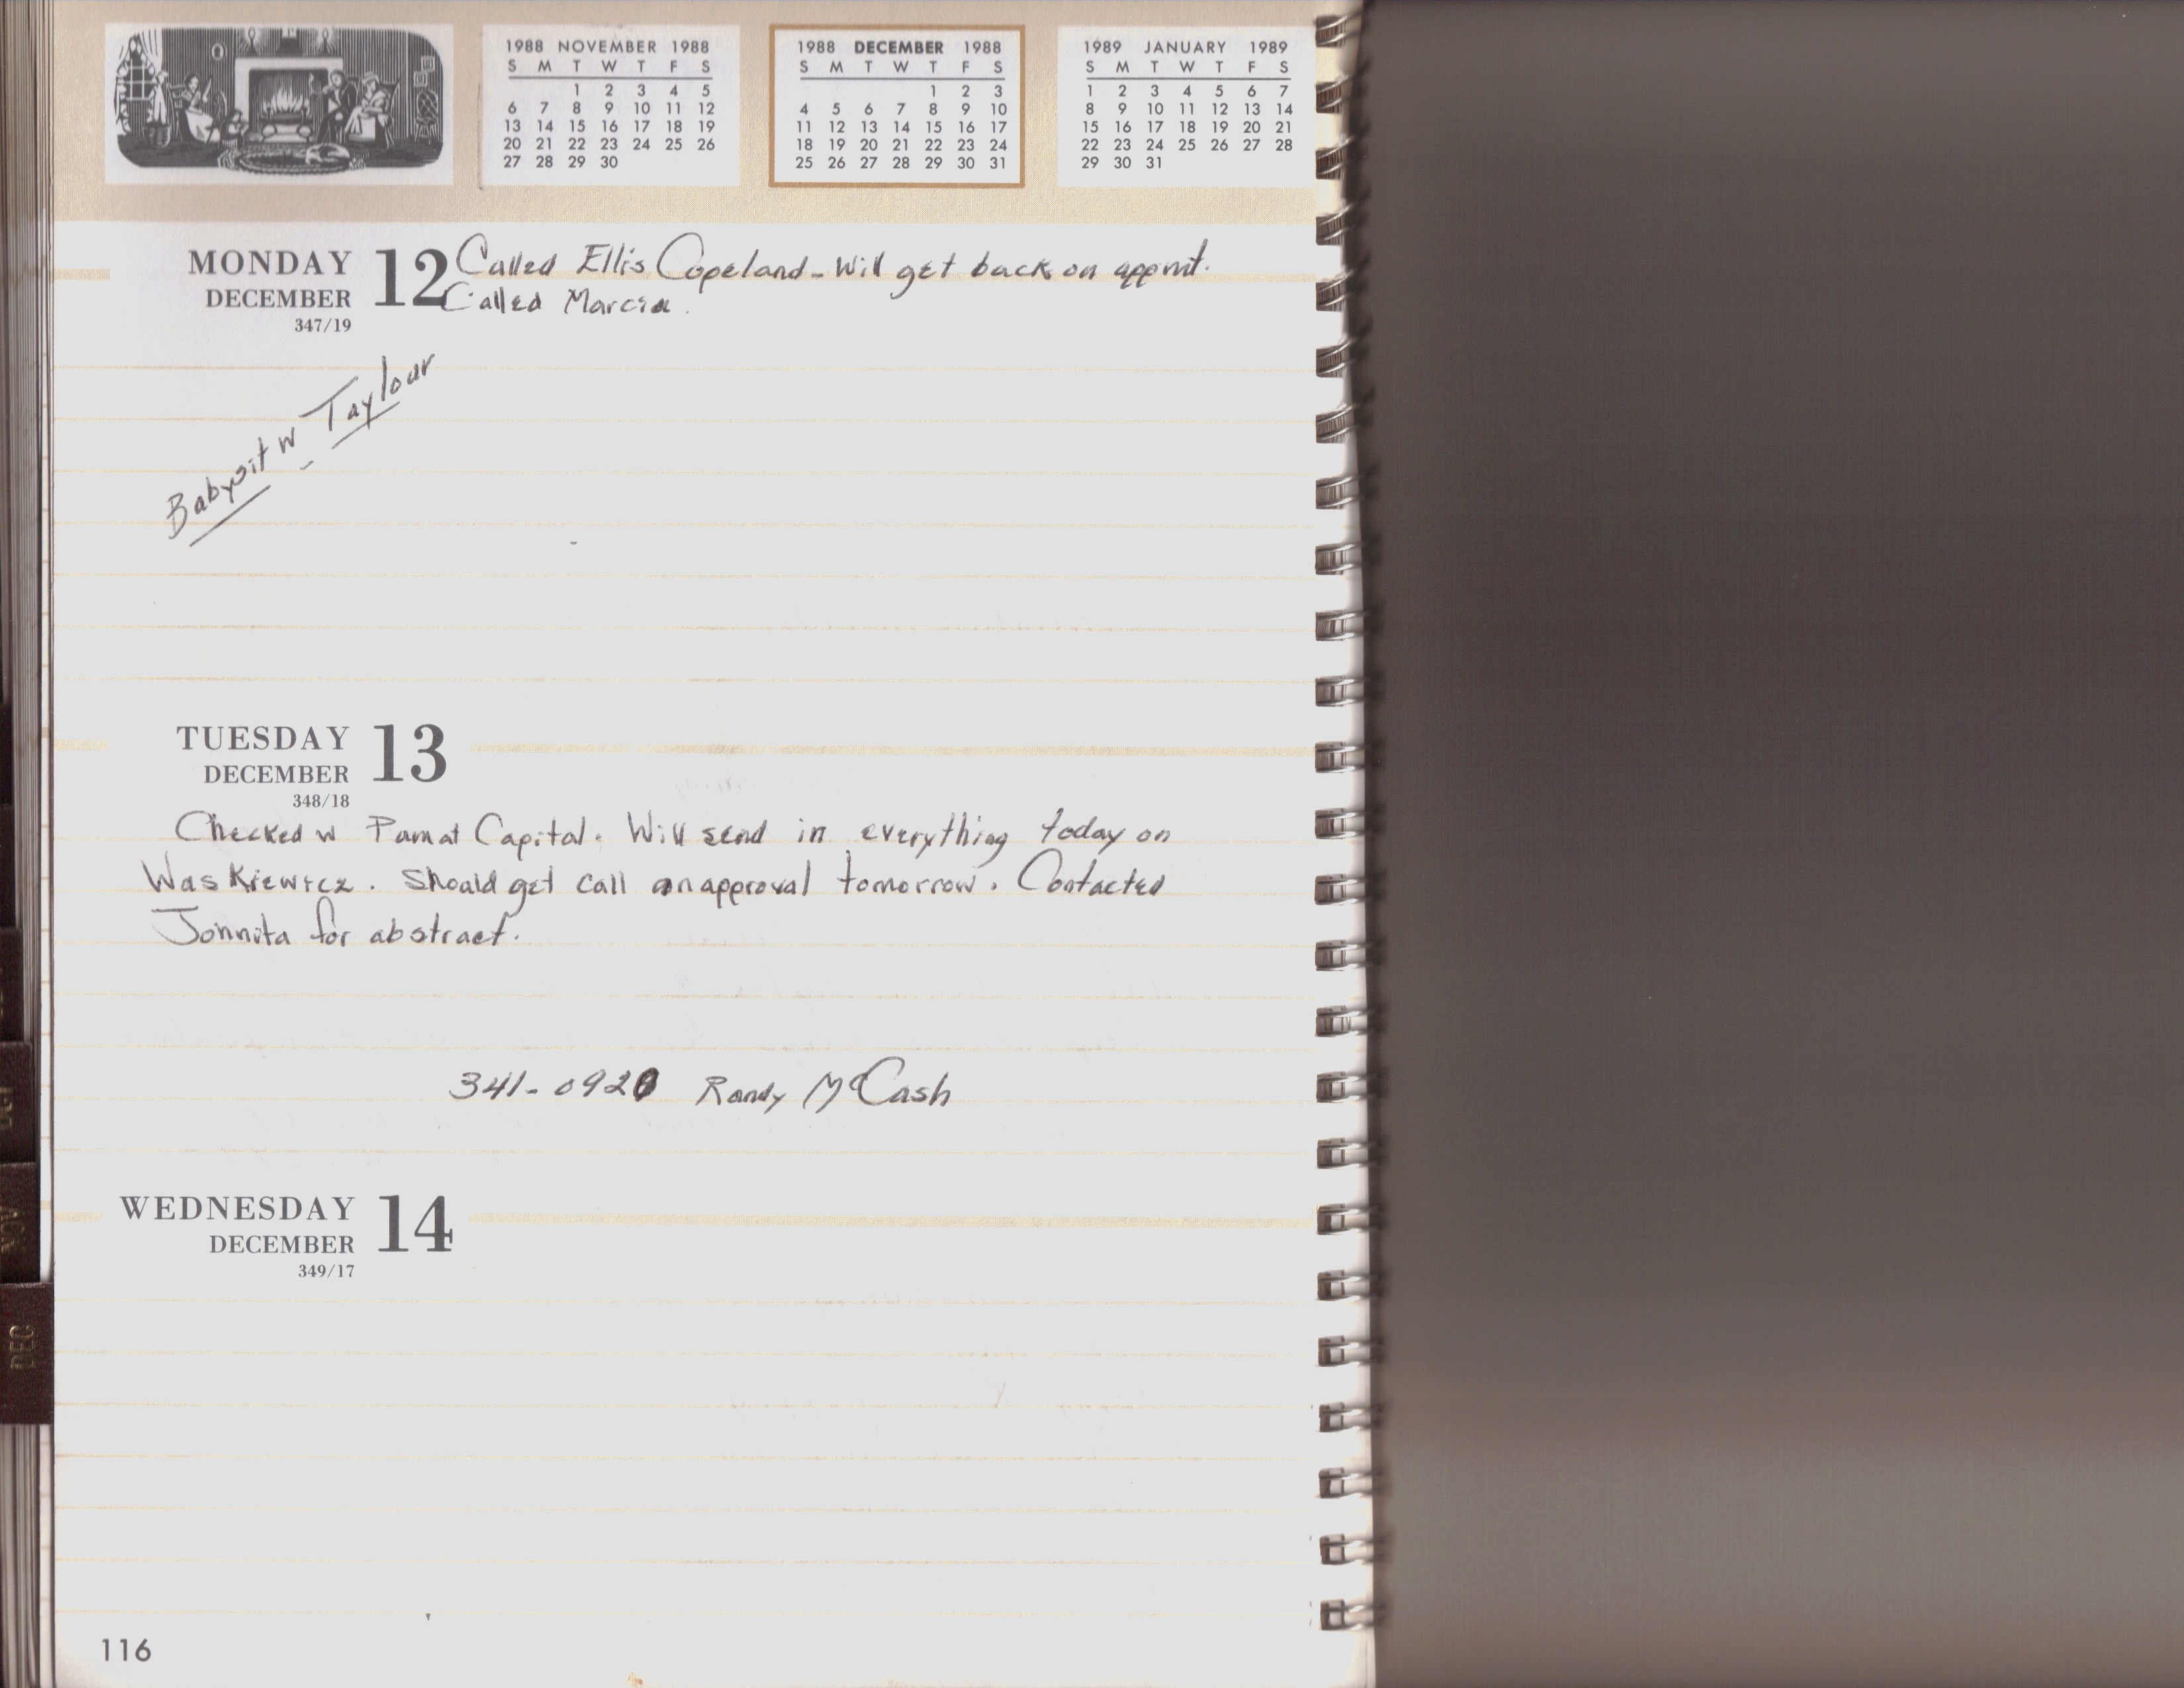 1988 NOVEMBER 1988
S M T W T F S
1 2 3 4 5
6 7 8 9 10 11 12
13 14 15 16 17 18 19
20 21 22 23 24 25 26
27 28 29 30
1988 DECEMBER 1988
S M T W T F S
1 2 3
4 5 6 7 8 9 10
11 12 13 14 15 16 17
18 19 20 21 22 23 24
25 26 27 28 29 30 31
1989 JANUARY 1989
S M T W T F S
1 2 3 4 5 6 7
8 9 10 11 12 13 14
15 16 17 18 19 20 21
22 23 24 25 26 27 28
29 30 31
MONDAY 12
DECEMBER
347/19
Called Ellis Copeland - Will get back on appmt.
Called Marcia.
Babysit w Taylour
TUESDAY 13
DECEMBER
348/18
Checked w Capital. Will send in everything today on
Waskiewicz. Should get call on approval tomorrow. Contacted
for abstract.
341-0920 Randy McCash
WEDNESDAY 14
DECEMBER
349/17
NOV
DEC
116